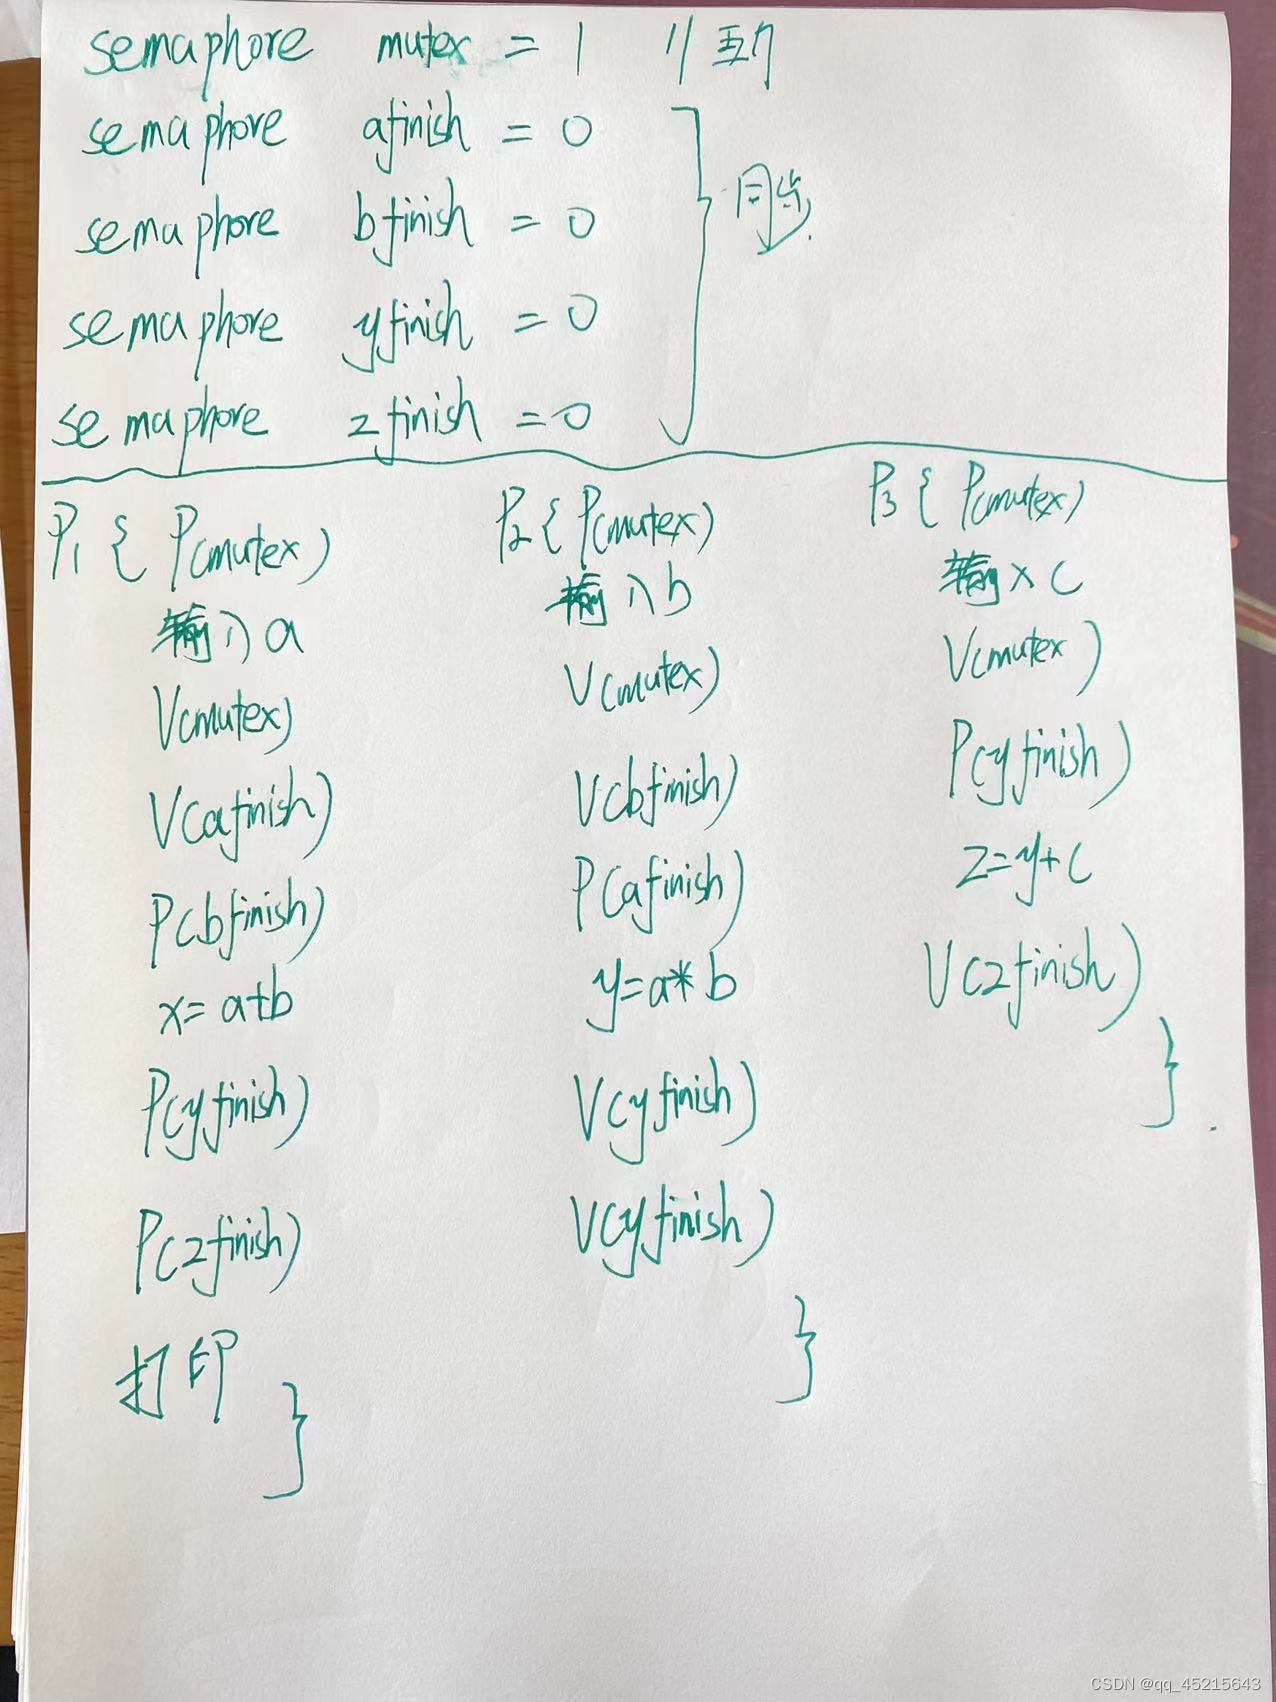 semaphore mutex = 1 // 互斥
semaphore afinish = 0
semaphore bfinish = 0
同步
semaphore yfinish = 0
semaphore zfinish = 0
P1 { P(mutex)
输入a
V(mutex)
V(afinish)
P(bfinish)
x = a+b
P(yfinish)
P(zfinish)
打印
}
P2 { P(mutex)
输入b
V(mutex)
V(bfinish)
P(afinish)
y=a* b
V(yfinish)
V(yfinish)
}
P3 { P(mutex)
输入c
V(mutex)
P(yfinish)
z=y+c
V(zfinish)
}
CSDN @qq_45215643